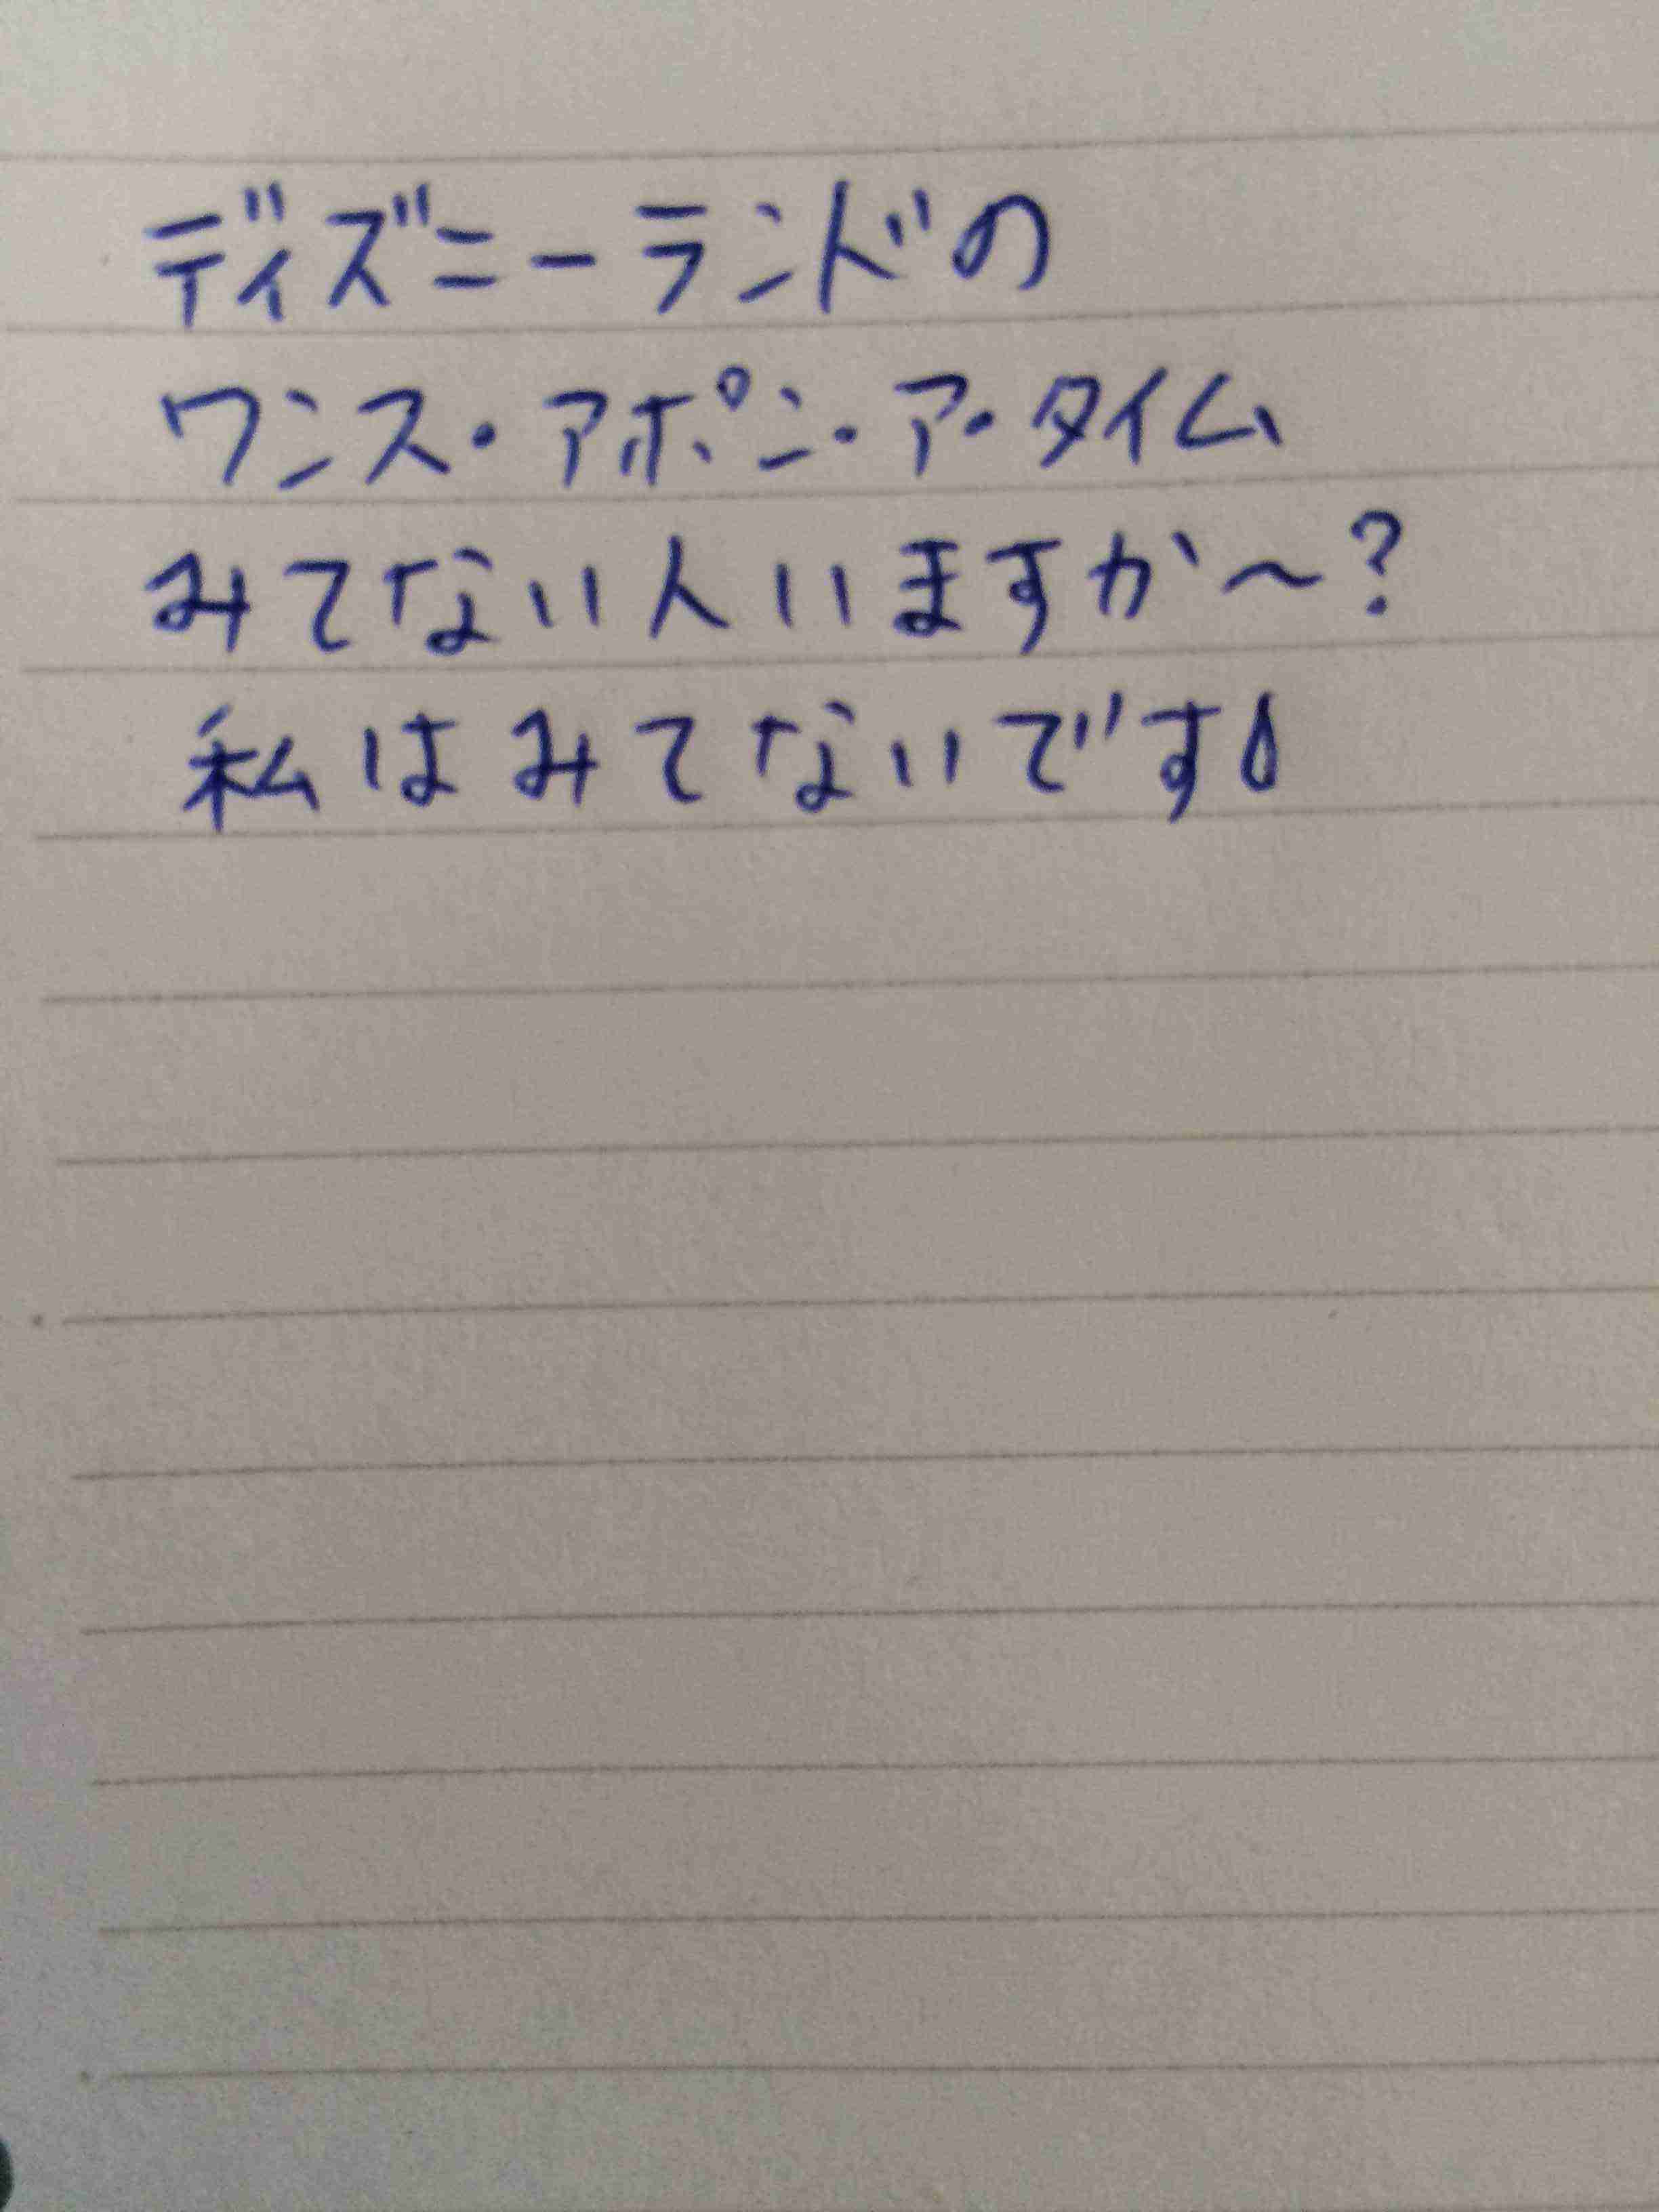 ディズニーランドの
ワンス・アポン・ア・タイム
みてない人いますか～?
私はみてないです